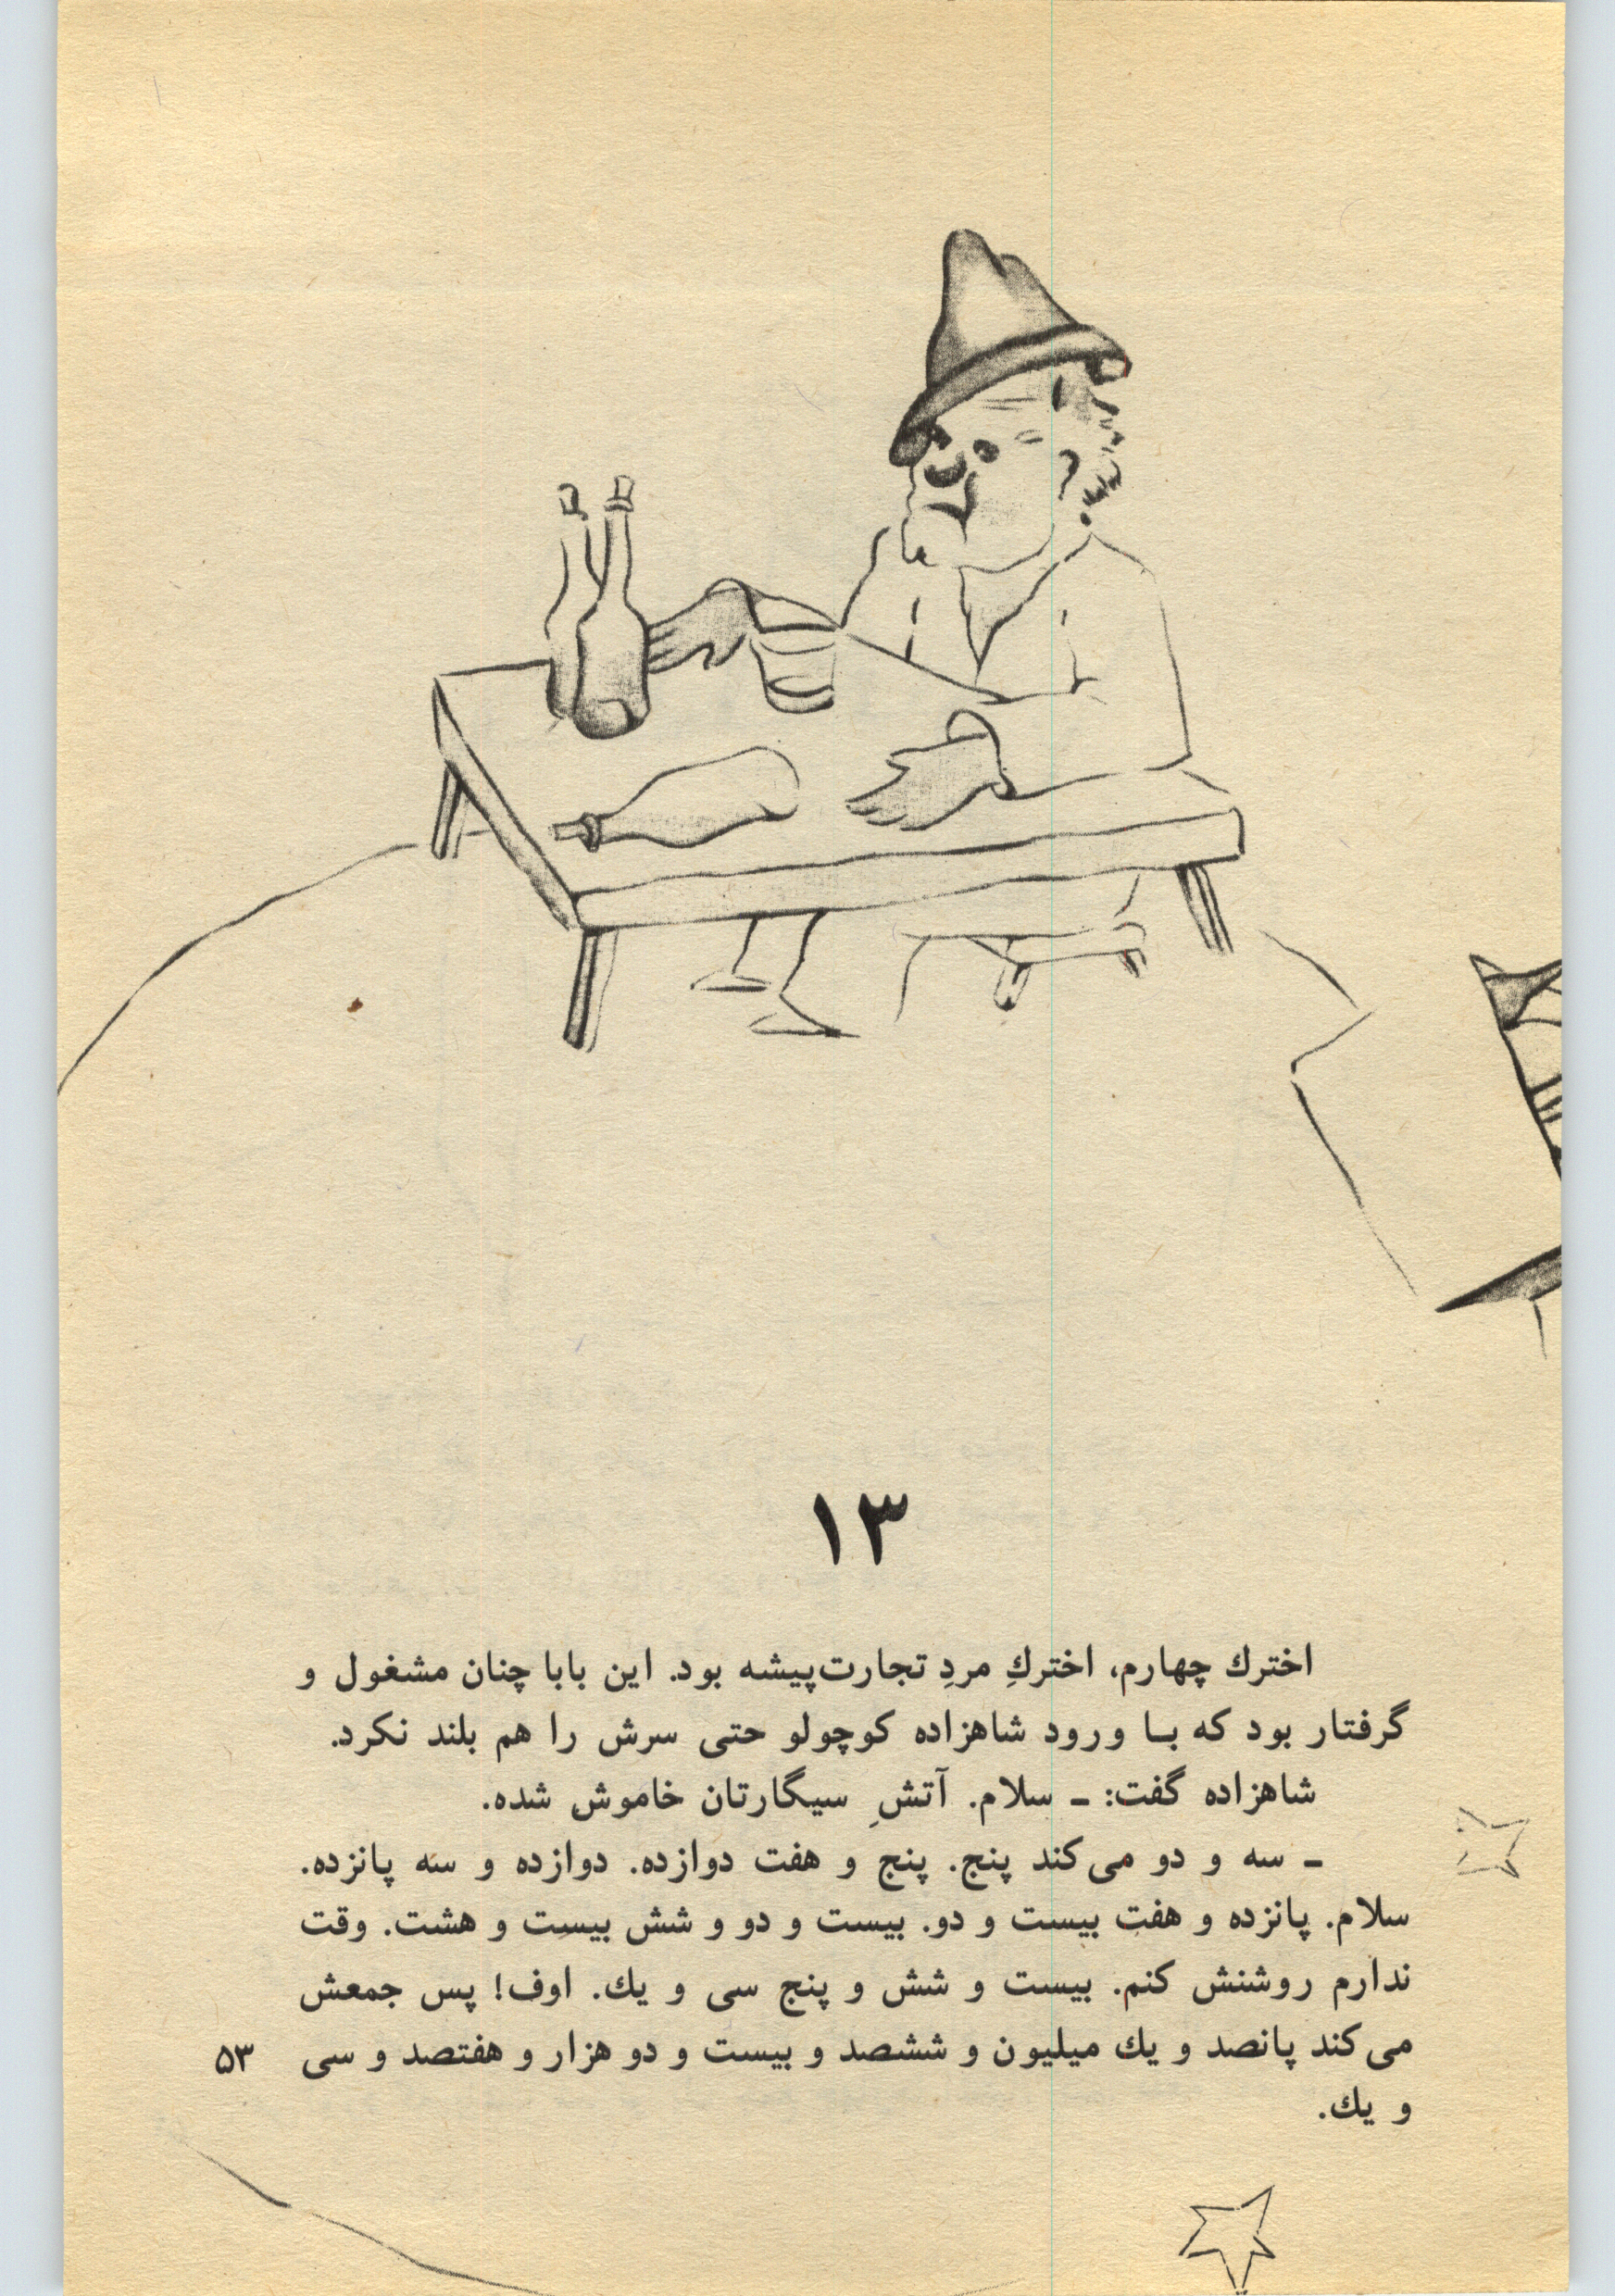 ۱۳
اخترك چهارم، اختركِ مردِ تجارت‌پیشه بود. این بابا چنان مشغول و
گرفتار بود که بـا ورود شاهزاده کوچولو حتی سرش را هم بلند نکرد.
شاهزاده گفت: ـ سلام. آتشِ سیگارتان خاموش شده.
ـ سه و دو می‌کند پنج. پنج و هفت دوازده. دوازده و سه پانزده.
سلام. پانزده و هفت بیست و دو. بیست و دو و شش بیست و هشت. وقت
ندارم روشنش کنم. بیست و شش و پنج سی و یك. اوف! پس جمعش
می‌کند پانصد و یك میلیون و ششصد و بیست و دو هزار و هفتصد و سی
و یك.
۵۳